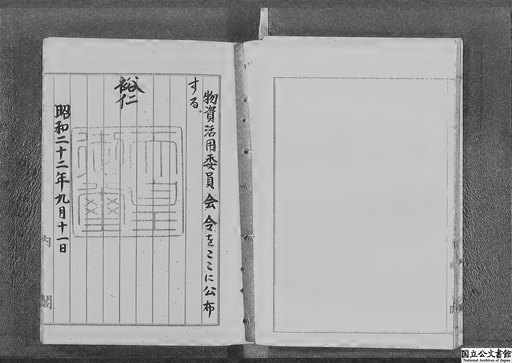 物資活用委員会令をここに公布
する。
裕仁
天皇
御璽
昭和二十二年九月十一日
内閣
国立公文書館
National Archives of Japan